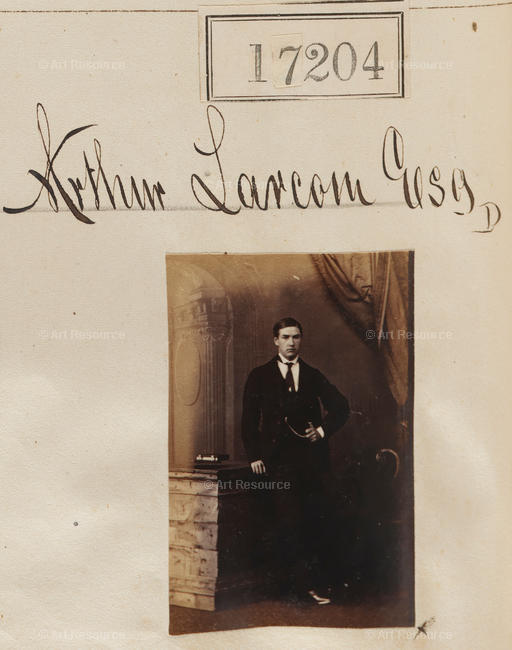 17204
Arthur Larcom Esq
D
© Art Resource
© Art Resource
© Art Resource
© Art Resource
© Art Resource
© Art Resource
© Art Resource